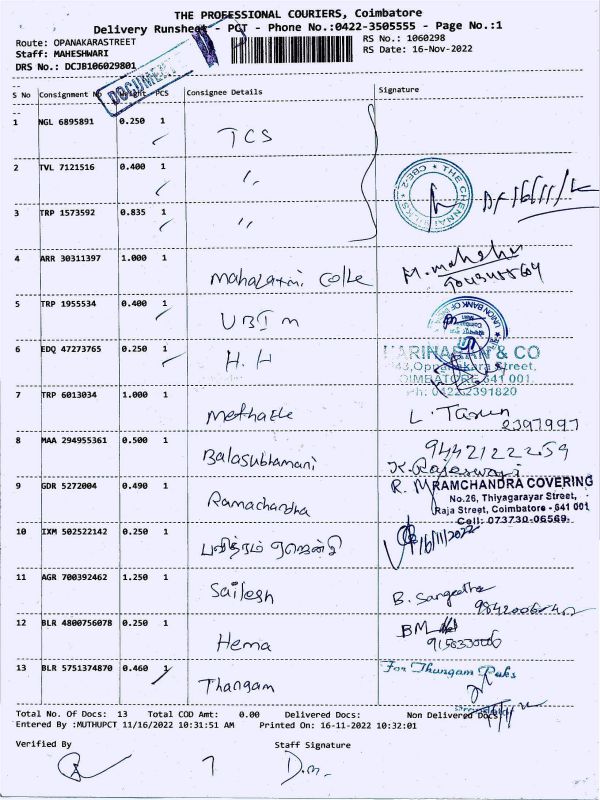 THE PROFESSIONAL COURIERS, Coimbatore
Delivery Runsheet - PCT - Phone No.:0422-3505555 - Page No.:1
Route: OPANAKARASTREET
RS No.: 1060298
Staff: MAHESHWARI
RS Date: 16-Nov-2022
DRS No.: DCJB106029801
DOCUMENT
S No Consignment No Weight PCS Consignee Details Signature
1 NGL 6895891 0.250 1 TCS
2 TVL 7121516 0.400 1 "
THE CHENNAI SILKS CBE-2
3 TRP 1573592 0.835 1 "
4 ARR 30311397 1.000 1 Mahalaxmi M.Mahesh
5 TRP 1955534 0.400 1 UBI m
UNION BANK OF
6 EDQ 47273765 0.250 1 H.H
& CO
Street,
COIMBATORE 641 001.
Ph: 0422 2391820
7 TRP 6013034 1.000 1 L. Tarun
2397997
8 MAA 294955361 0.500 1 Balasubhamani 9442122259
K.Rajeswari
9 GDR 5272004 0.490 1 Ramachandha R. M
RAMCHANDRA COVERING
No.26, Thiyagarayar Street,
Raja Street, Coimbatore - 641 001
Cell: 073730-06569.
10 IXM 502522142 0.250 1 பவித்ரம் ஏஜென்சி 16/11/2022
11 AGR 700392462 1.250 1 Sailesh B. Sangeetha
12 BLR 4800756078 0.250 1 Hema BM
13 BLR 5751374870 0.460 1 Thangam For Thangam
Total No. Of Docs: 13 Total COD Amt: 0.00 Delivered Docs: Non Delivered Docs:
Entered By :MUTHUPCT 11/16/2022 10:31:51 AM Printed On: 16-11-2022 10:32:01
Verified By Staff Signature
7 D.m.